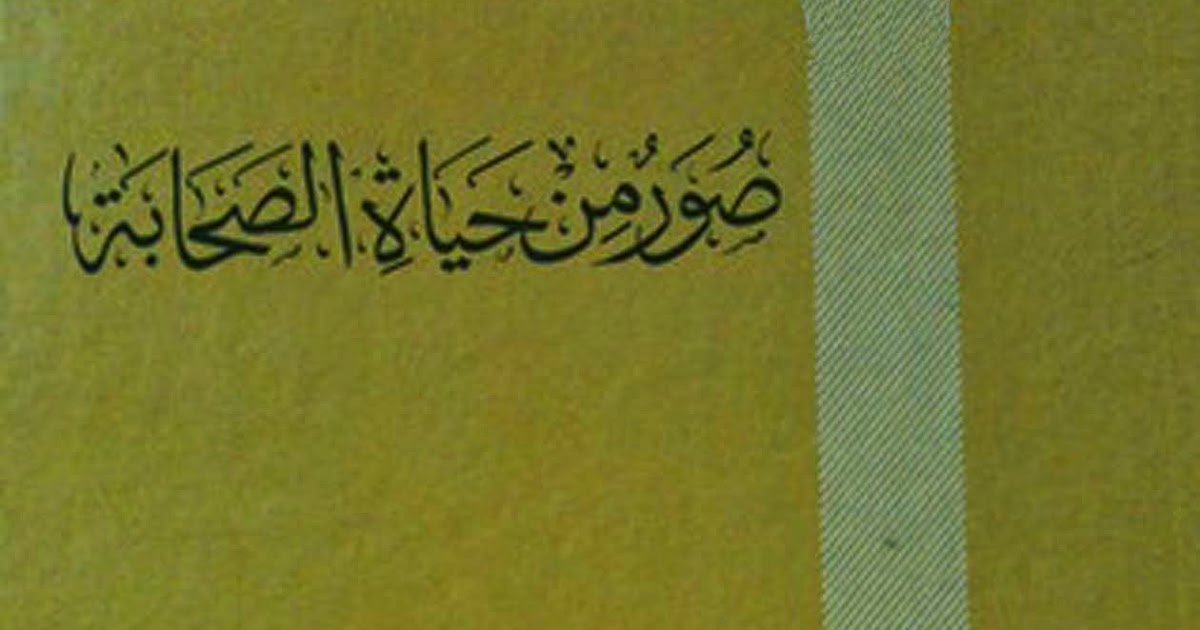 صُوَرٌ مِنْ حَيَاةِ الصَّحَابَة